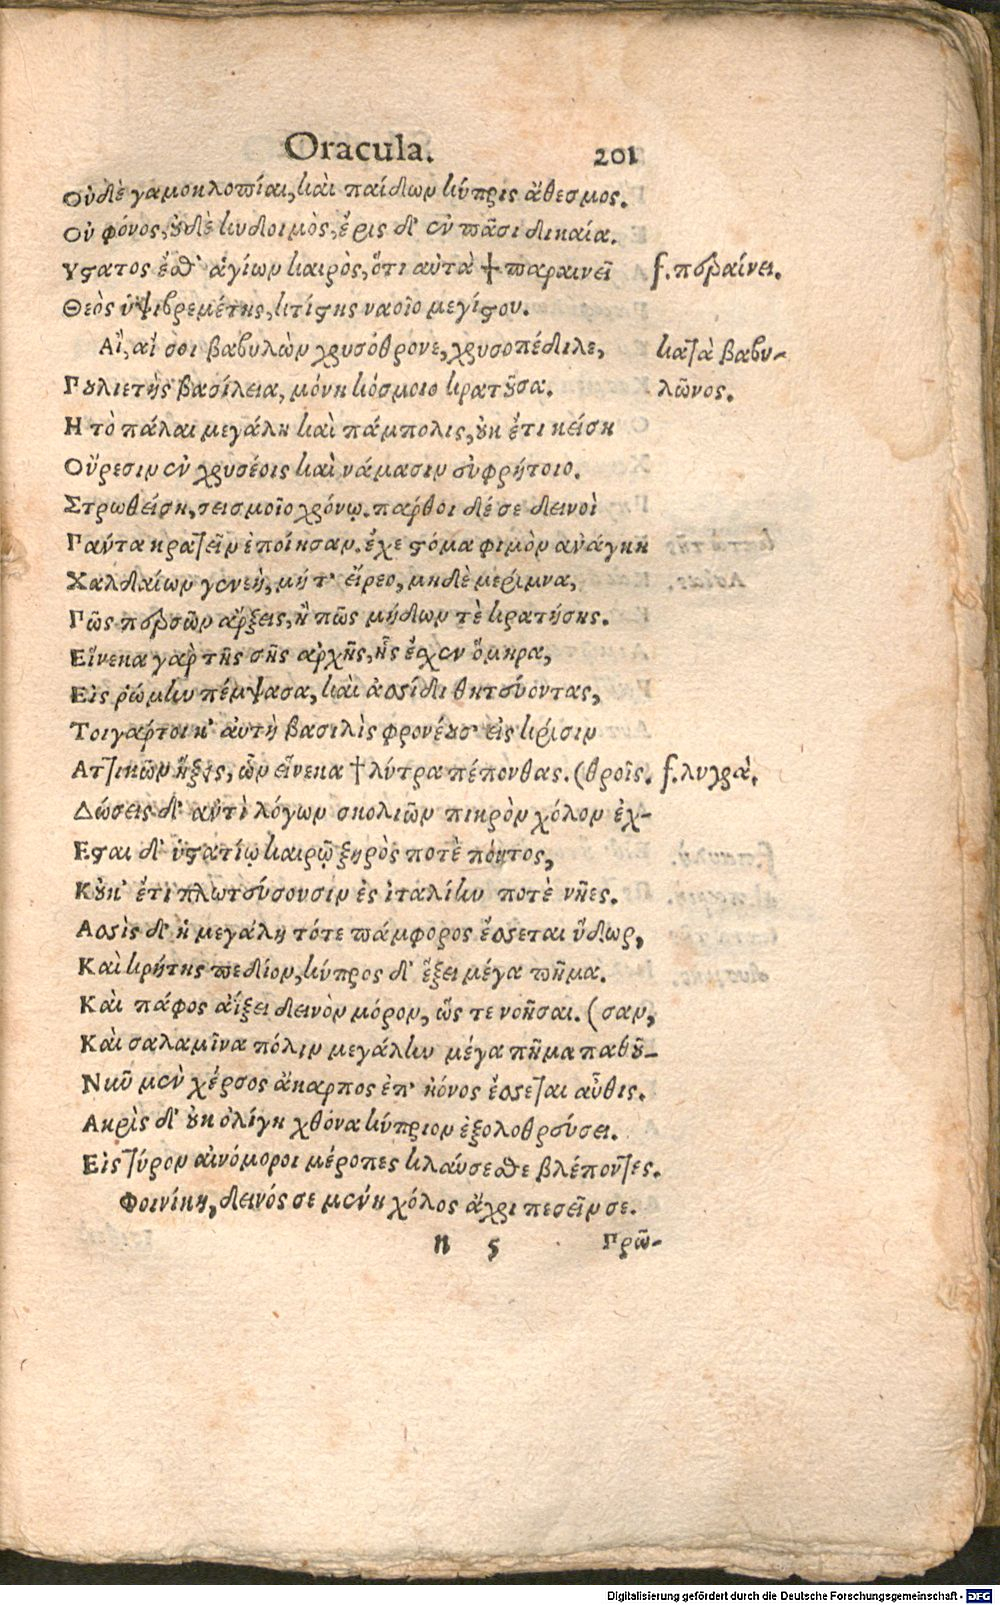 Oracula. 201
Οὐδὲ γαμοκλοπίαι, καὶ παίδων κύπρις ἄθεσμος.
Οὐ φόνος, οὐδὲ κυδοιμὸς, ἔρις δ' ἐν πᾶσι δικαία.
Υστατος ἔσθ' ἁγίων καιρὸς, ὅτι αὐτὰ † παραινεῖ f. περαίνει.
Θεὸς ὑψιβρεμέτης, κτίστης ναοῖο μεγίστου.
Αἲ, αἴ σοι βαβυλὼν χρυσόθρονε, χρυσοπέδιλε, κατὰ βαβυ-
Πουλιετὴς βασίλεια, μόνη κόσμοιο κρατοῦσα. λῶνος.
Η τὸ πάλαι μεγάλη καὶ πάμπολις, οὐκ ἔτι κείση
Οὔρεσιν ἐν χρυσέοις καὶ νάμασιν εὐφρήτοιο.
Στρωθείση, σεισμοῖο χρόνῳ. πάρθοι δέ σε δεινοὶ
Πάντα κρατεῖν ἐποίησαν. ἔχε στόμα φιμὸν ἀνάγκη
Χαλδαίων γενεὴ, μή τ' εἴρεο, μηδὲ μερίμνα,
Πῶς περσῶν ἄρξεις, ἢ πῶς μήδων τὲ κρατήσης.
Εἵνεκα γὰρ τῆς σῆς ἀρχῆς, ἧς ἔσχεν ὅμηρα,
Εἰς ῥώμην πέμψασα, καὶ ἀσίδι θητεύοντας,
Τοιγάρτοι κ' αὐτὴ βασιλὶς φρονέουσ' εἰς κρίσιν
Ατζικῶν ἥξεις, ὧν εἵνεκα † λύτρα πέπονθας. (θροῖς. f. λυγρά.
Δώσεις δ' ἀντὶ λόγων σκολιῶν πικρὸν χόλον ἐχ-
Εσται δ' ὑστατίῳ καιρῷ ξηρὸς ποτὲ πόντος,
Κοὐκ' ἔτι πλωτεύσουσιν ἐς ἰταλίην ποτὲ νῆες.
Ασὶς δ' ἡ μεγάλη τότε πάμφορος ἔσσεται ὕδωρ,
Καὶ κρήτης πεδίον, κύπρος δ' ἕξει μέγα πῆμα.
Καὶ πάφος αἴξει δεινὸν μόρον, ὥς τε νοῆσαι. (σαν,
Καὶ σαλαμῖνα πόλιν μεγάλην μέγα πῆμα παθοῦ-
Νῦν μὲν χέρσος ἄκαρπος ἐπ' ἠόνος ἔσσεται αὖθις.
Ακρὶς δ' οὐκ ὀλίγη χθόνα κύπριον ἐξολοθρεύσει.
Εἰς τύρον αἰνόμοροι μέροπες κλαύσεσθε βλέποντες.
Φοινίκη, δεινός σε μένη χόλος ἄχρι πεσεῖν σε.
n 5 Πρῶ-
Digitalisierung gefördert durch die Deutsche Forschungsgemeinschaft - DFG